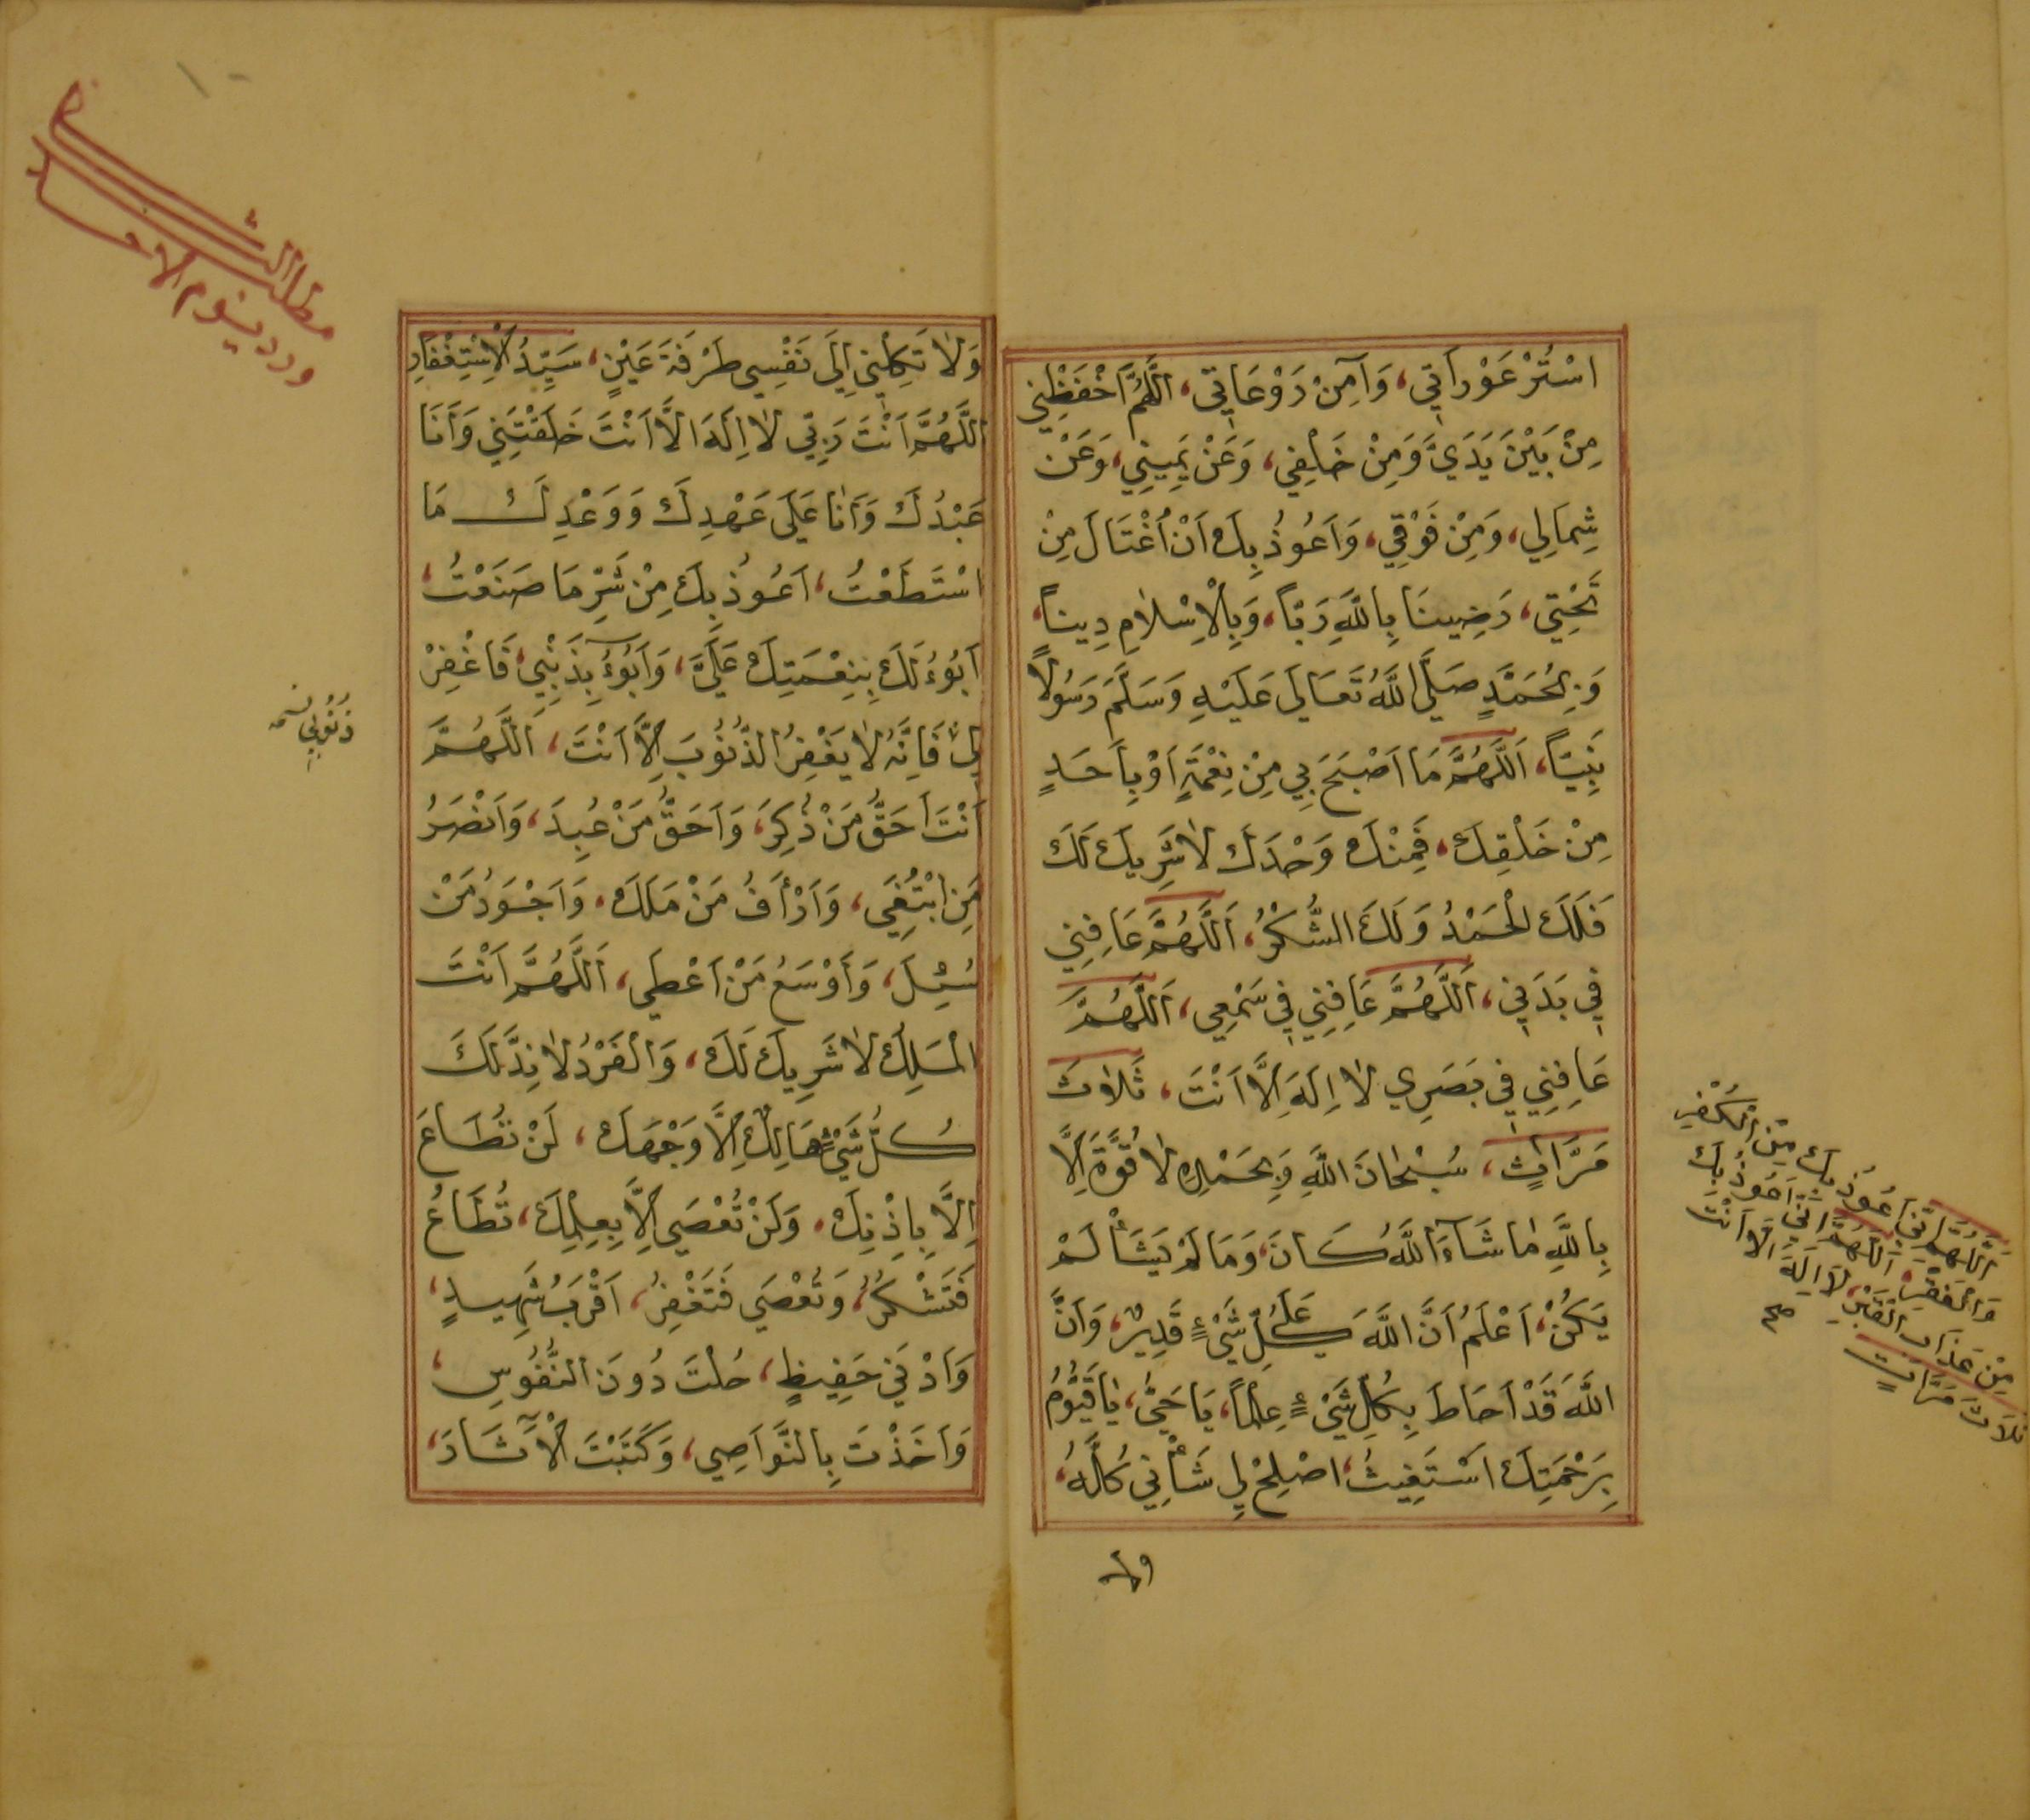 اسْتُرْ عَوْرَاتِي، وَآمِنْ رَوْعَاتِي، اَللّٰهُمَّ احْفَظْنِي
مِنْ بَيْنَ يَدَيَّ وَمِنْ خَلْفِي، وَعَنْ يَمِينِي، وَعَنْ
شِمَالِي، وَمِنْ فَوْقِي، وَاَعُوذُ بِكَ اَنْ اُغْتَالَ مِنْ
تَحْتِي، رَضِينَا بِاللّٰهِ رَبّاً، وَبِالْاِسْلَامِ دِيناً،
وَبِمُحَمَّدٍ صَلَّى اللّٰهُ تَعَالَى عَلَيْهِ وَسَلَّمَ رَسُولاً
نَبِيّاً، اَللّٰهُمَّ مَا اَصْبَحَ بِي مِنْ نِعْمَةٍ اَوْ بِاَحَدٍ
مِنْ خَلْقِكَ، فَمِنْكَ وَحْدَكَ لَا شَرِيكَ لَكَ
فَلَكَ الْحَمْدُ وَلَكَ الشُّكْرُ، اَللّٰهُمَّ عَافِنِي
فِي بَدَنِي، اَللّٰهُمَّ عَافِنِي فِي سَمْعِي، اَللّٰهُمَّ
عَافِنِي فِي بَصَرِي لَا اِلَهَ اِلَّا اَنْتَ، ثَلَاثَ
مَرَّاتٍ، سُبْحَانَ اللّٰهِ وَبِحَمْدِهِ لَا قُوَّةَ اِلَّا
بِاللّٰهِ مَا شَاءَ اللّٰهُ كَانَ، وَمَا لَمْ يَشَأْ لَمْ
يَكُنْ، اَعْلَمُ اَنَّ اللّٰهَ عَلَى كُلِّ شَيْءٍ قَدِيرٌ، وَاَنَّ
اللّٰهَ قَدْ اَحَاطَ بِكُلِّ شَيْءٍ عِلْماً، يَا حَيُّ، يَا قَيُّومُ
بِرَحْمَتِكَ اَسْتَغِيثُ، اصْلِحْ لِي شَأْنِي كُلَّهُ،
ولا
اَللّٰهُمَّ اِنِّي اَعُوذُ بِكَ مِنَ الْكُفْرِ
وَالْفَقْرِ، اَللّٰهُمَّ اِنِّي اَعُوذُ بِكَ
مِنْ عَذَابِ الْقَبْرِ، لَا اِلَهَ اِلَّا اَنْتَ
ثَلَاثَ مَرَّاتٍ
صح
١٠
مطلب الثالث
ورد يوم الاحد
وَلَا تَكِلْنِي اِلَى نَفْسِي طَرْفَةَ عَيْنٍ، سَيِّدُ الْاِسْتِغْفَارِ
اَللّٰهُمَّ اَنْتَ رَبِّي لَا اِلَهَ اِلَّا اَنْتَ خَلَقْتَنِي وَاَنَا
عَبْدُكَ وَاَنَا عَلَى عَهْدِكَ وَوَعْدِكَ مَا
اسْتَطَعْتُ، اَعُوذُ بِكَ مِنْ شَرِّ مَا صَنَعْتُ،
اَبُوءُ لَكَ بِنِعْمَتِكَ عَلَيَّ، وَاَبُوءُ بِذَنْبِي، فَاغْفِرْ
لِي، فَاِنَّهُ لَا يَغْفِرُ الذُّنُوبَ اِلَّا اَنْتَ، اَللّٰهُمَّ
اَنْتَ اَحَقُّ مَنْ ذُكِرَ، وَاَحَقُّ مَنْ عُبِدَ، وَاَنْصَرُ
مَنِ ابْتُغِيَ، وَاَرْاَفُ مَنْ مَلَكَ، وَاَجْوَدُ مَنْ
سُئِلَ، وَاَوْسَعُ مَنْ اَعْطَى، اَللّٰهُمَّ اَنْتَ
الْمَلِكُ لَا شَرِيكَ لَكَ، وَالْفَرْدُ لَا نِدَّ لَكَ
كُلُّ شَيْءٍ هَالِكٌ اِلَّا وَجْهَكَ، لَنْ تُطَاعَ
اِلَّا بِاِذْنِكَ، وَلَنْ تُعْصَى اِلَّا بِعِلْمِكَ، تُطَاعُ
فَتَشْكُرُ، وَتُعْصَى فَتَغْفِرُ، اَقْرَبُ شَهِيدٍ،
وَاَدْنَى حَفِيظٍ، حُلْتَ دُونَ النُّفُوسِ،
وَاَخَذْتَ بِالنَّوَاصِي، وَكَتَبْتَ الْآثَارَ،
ذُنُوبِي نسخه